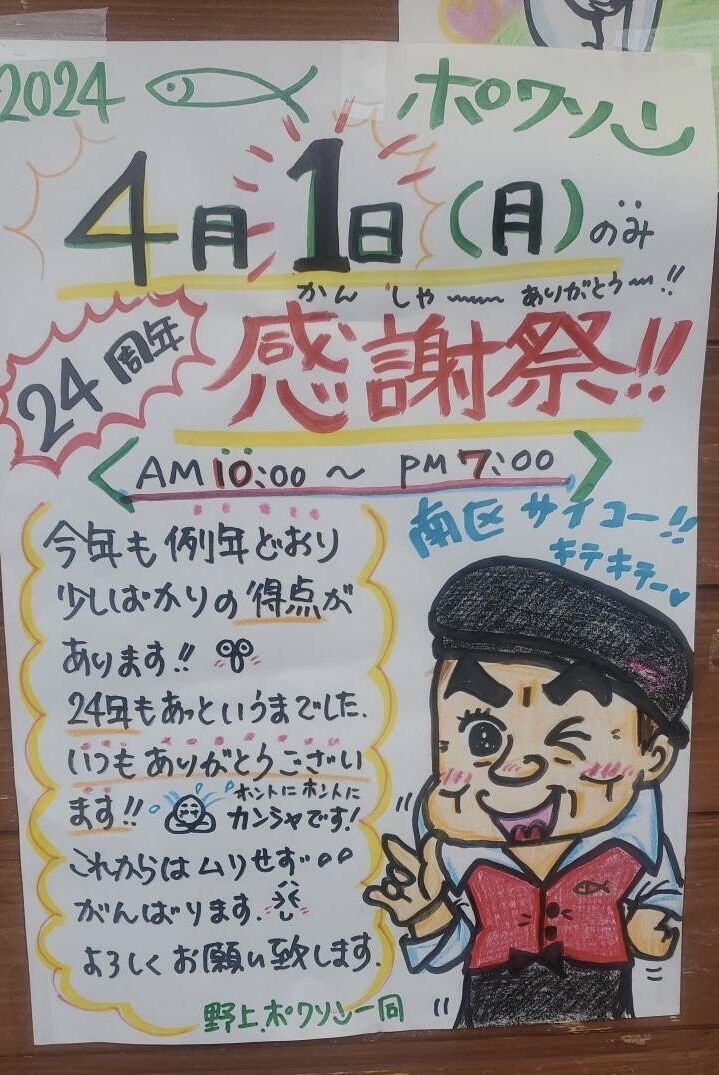 2024 ポワソン
4月1日(月)のみ
かん しゃ〜〜 ありがとう〜!!
24周年
感謝祭!!
AM10:00 〜 PM7:00
南区サイコー!!
キテキテー♥
今年も例年どおり
少しばかりの得点が
あります!!
24年もあっというまでした.
いつもありがとうござい
ます!!
ホントにホントに
カンシャです!
これからはムリせず
がんばります.
よろしくお願い致します.
野上.ポワソン一同